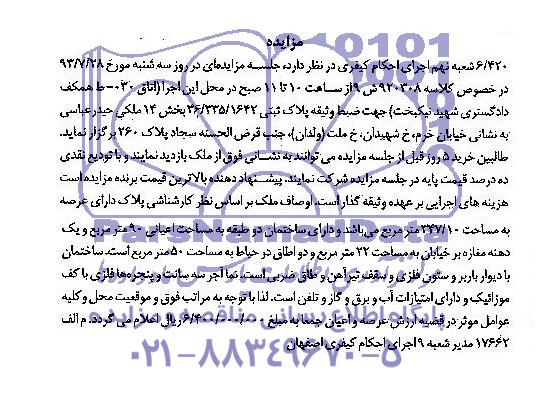 مزایده
۶/۴۲۰ شعبه نهم اجرای احکام کیفری در نظر دارد، جلسه مزایده‌ای در روز سه شنبه مورخ ۹۳/۷/۲۸
در خصوص کلاسه ۹۲۰۳۰۸ ش ۹ از ساعت ۱۰ تا ۱۱ صبح در محل این اجرا (اتاق ۰۳۰-ط همکف
دادگستری شهید نیکبخت) جهت ضبط وثیقه پلاک ثبتی ۳۶/۳۳۵/۱۶۴۲ بخش ۱۴ ملکی حیدرعباسی
به نشانی خیابان خرم، خ شهیدان، خ ملت (ولدان)، جنب قرض الحسنه سجاد پلاک ۲۶۰ برگزار نماید.
طالبین خرید ۵ روز قبل از جلسه مزایده می توانند به نشانی فوق از ملک بازدید نمایند و با تودیع نقدی
ده درصد قیمت پایه در جلسه مزایده شرکت نمایند. پیشنهاد دهنده بالاترین قیمت برنده مزایده است
هزینه های اجرایی بر عهده وثیقه گذار است. اوصاف ملک بر اساس نظر کارشناشی پلاک دارای عرصه
به مساحت ۲۴۷/۱۰ متر مربع می‌باشد و دارای ساختمان دو طبقه به مساحت اعیانی ۹۰ متر مربع و یک
دهنه مغازه بر خیابان به مساحت ۲۲ متر مربع و دو اطاق در حیاط به مساحت ۵۰ متر مربع است. ساختمان
با دیوار باربر و ستون فلزی و سقف تیر آهن و طاق ضربی است. نما آجر سه سانت و پنجره‌ها فلزی با کف
موزائیک و دارای امتیازات آب و برق و گاز و تلفن است. لذا با توجه به مراتب فوق و موقعیت محل و کلیه
عوامل موثر در قضیه ارزش عرصه و اعیان جمعا به مبلغ ۶/۴۰۰/۰۰۰/۰۰۰ ریال اعلام می گردد. م الف
۱۷۶۶۲ مدیر شعبه ۹ اجرای احکام کیفری اصفهان
ParsNamadData
پایگاه اطلاع رسانی مناقصه و مزایده
۰۲۱-۸۸۳۴۹۶۷۰-۵